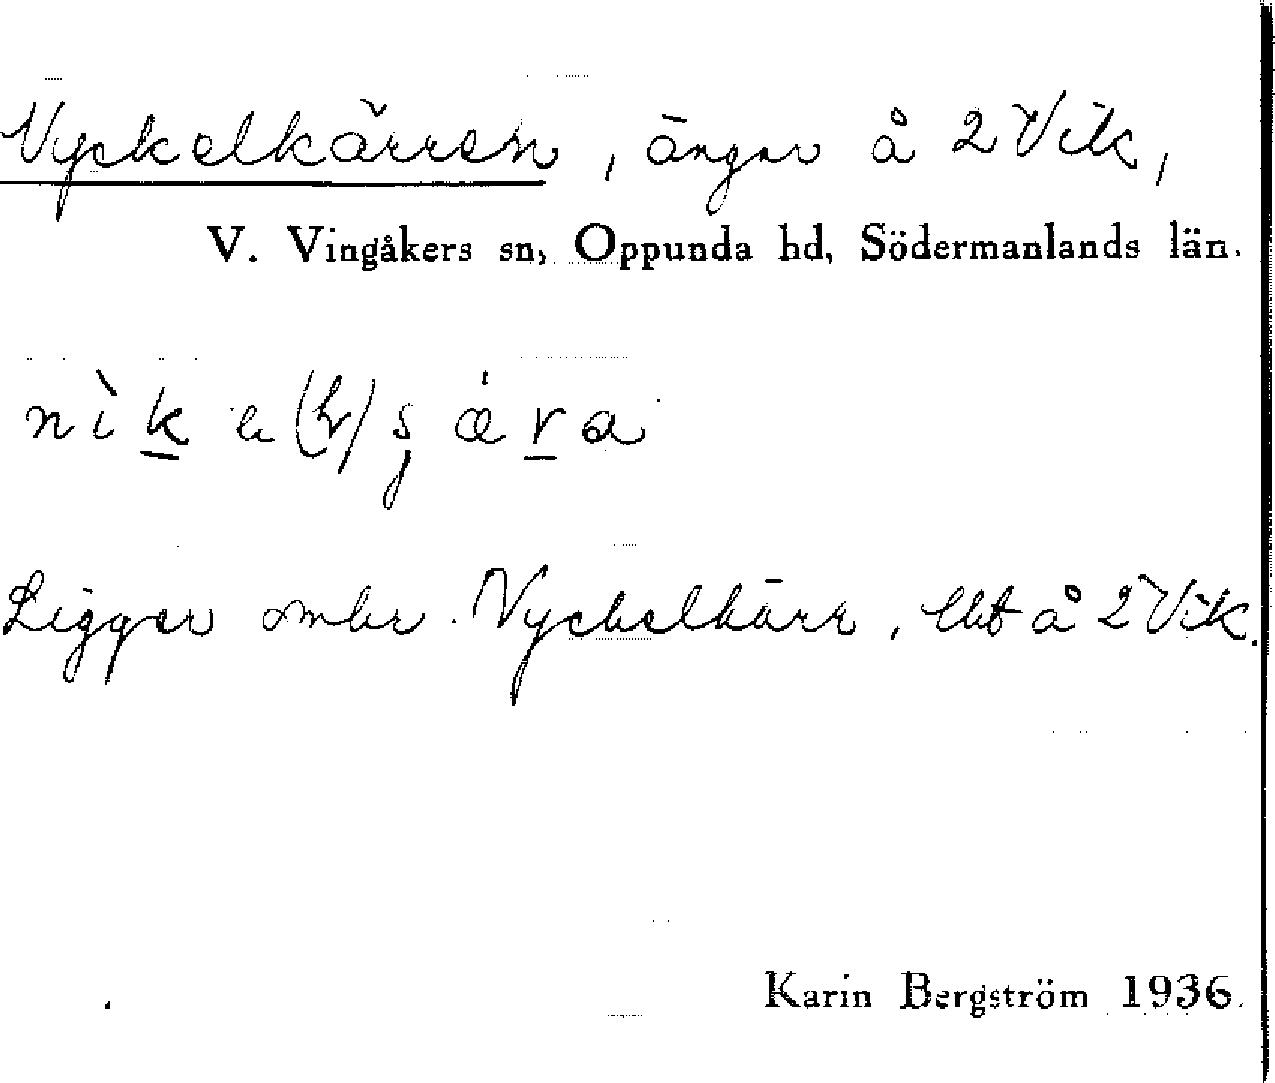 Nyckelkärren, ängar å 2 Vik,
V. Vingåkers sn, Oppunda hd, Södermanlands län.
Ligger omkr. Nyckelkärr, lht å 2 Vik.
Karin Bergström 1936.